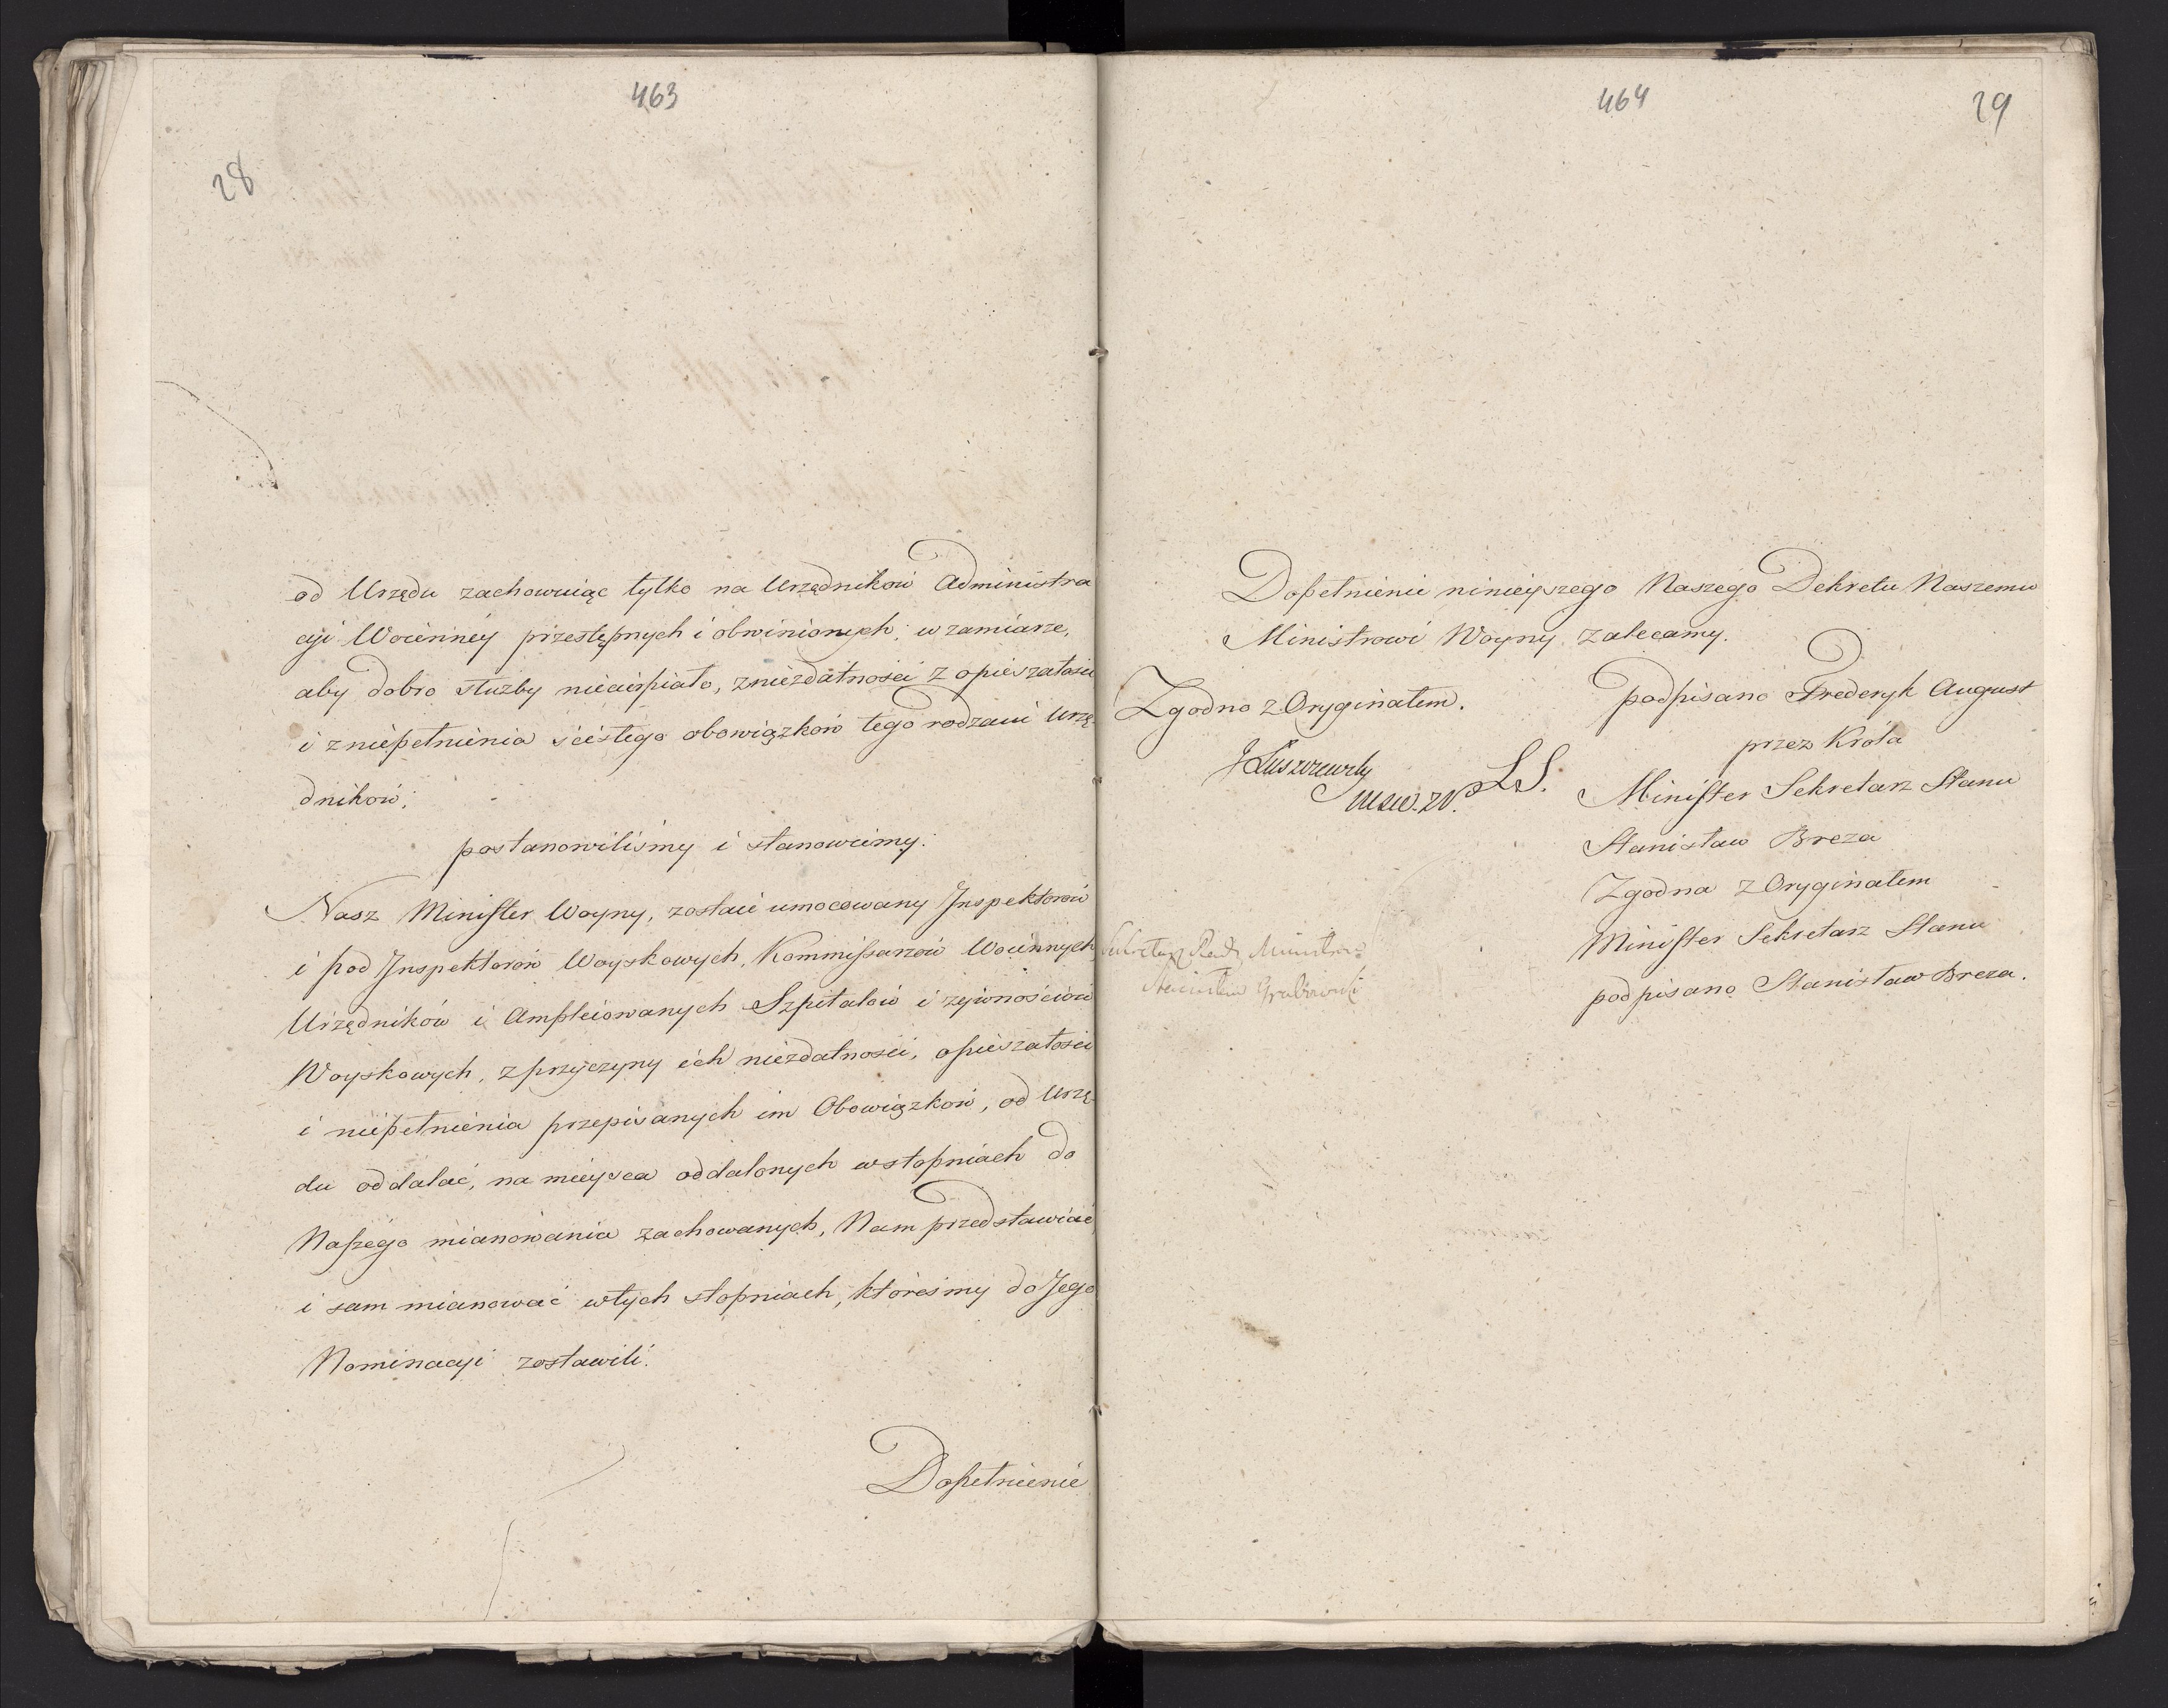 463
28
od Urzędu zachowuiąc tylko na Urzędników Administra
cyi Woienney przestępnych i obwinionych; w zamiarze,
aby dobro służby niecierpiało, z niezdatności z opieszałości
i z niepełnienia ścisłego obowiązków tego rodzaiu Urzę-
dników;
postanowiliśmy i stanowiemy:
Nasz Minister Woyny, zostaie umocowany Inspektorów
i pod Inspektorów Woyskowych, Kommissarzów Woiennych
Urzędników i Ampleiowanych Szpitalów i żywnościów
Woyskowych, z przyczyny ich niezdatności, opieszałości
i niepełnienia przepisanych im Obowiązków, od Urzę-
du oddalać, na mieysca oddalonych w stopniach do
Naszego mianowania zachowanych, Nam przedstawiać
i sam mianować w tych stopniach, któreśmy do Jego
Nominacyi zostawili.
Dopełnienie
464
29
Dopełnienie ninieyszego Naszego Dekretu Naszemu
Ministrowi Woyny zalecamy.
podpisano Frederyk August
przez Króla
Minister Sekretarz Stanu
Stanisław Breza
Zgodna z Oryginałem
Minister Sekretarz Stanu
podpisano Stanisław Breza.
Zgodno z Oryginałem.
J Łuszczewsky
LS.
Sekretarz Rady Ministrów
Grabowski